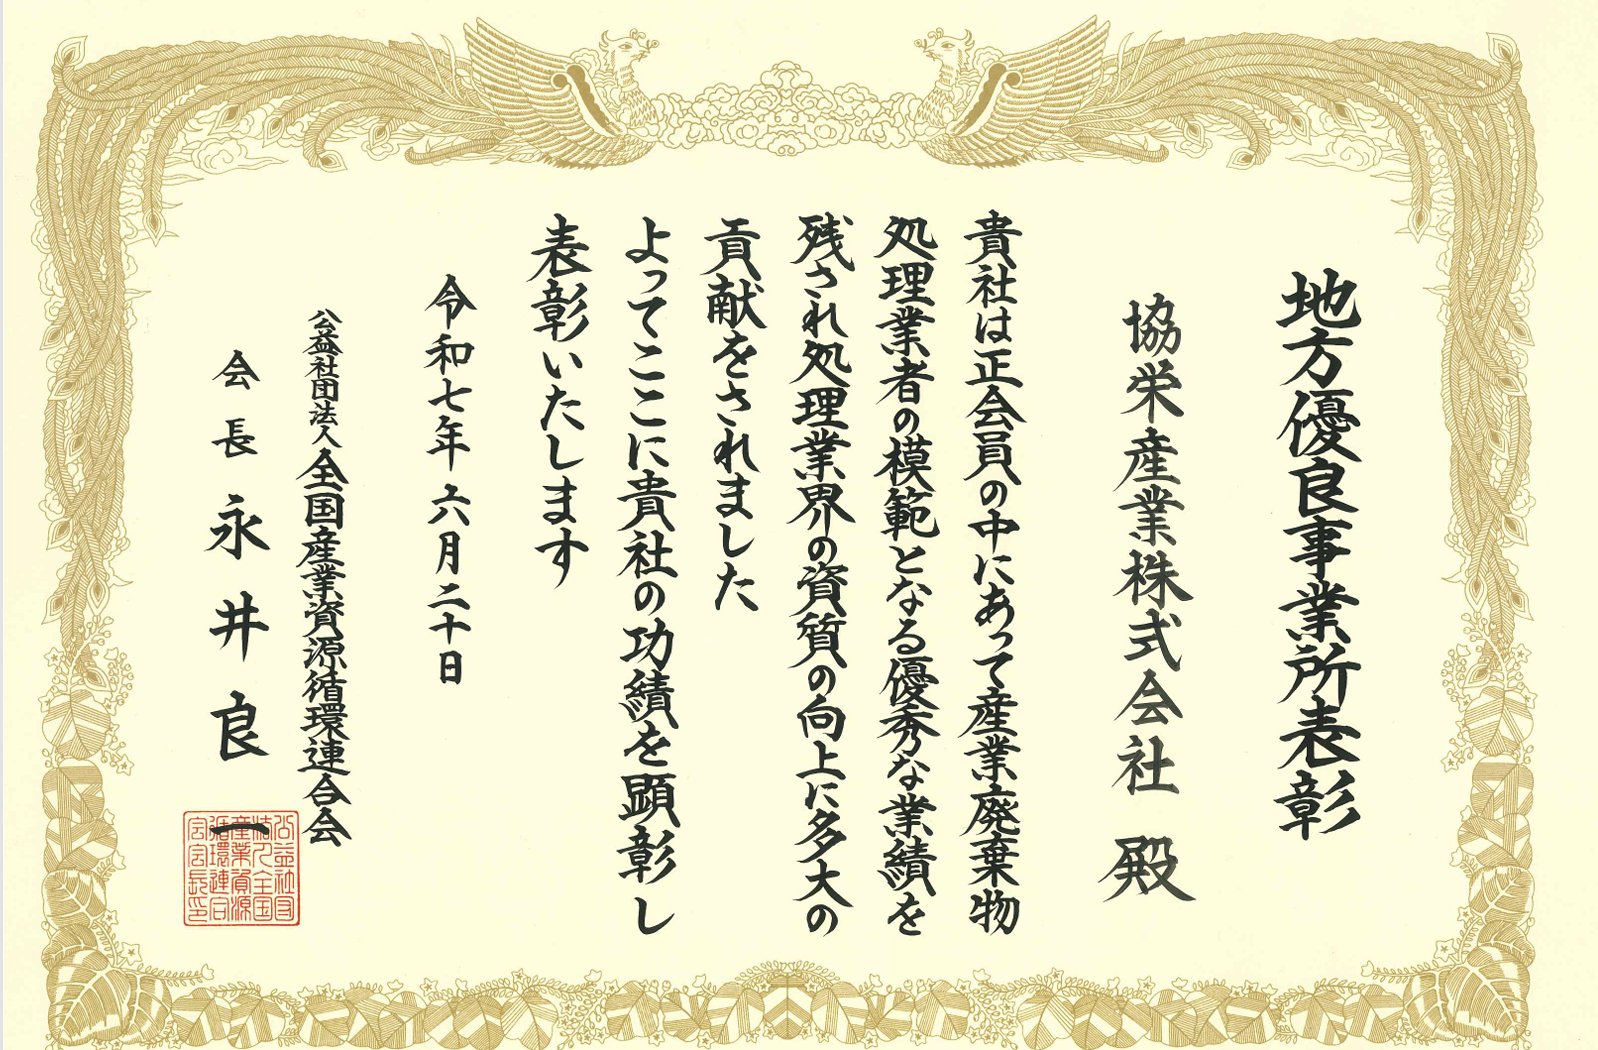 地方優良事業所表彰
協栄産業株式会社 殿
貴社は正会員の中にあって産業廃棄物
処理業者の模範となる優秀な業績を
残され処理業界の資質の向上に多大の
貢献をされました
よってここに貴社の功績を顕彰し
表彰いたします
令和七年六月二十日
公益社団法人全国産業資源循環連合会
会長 永井良一
公益社団
法人全国
産業資源
循環連合
会会長印